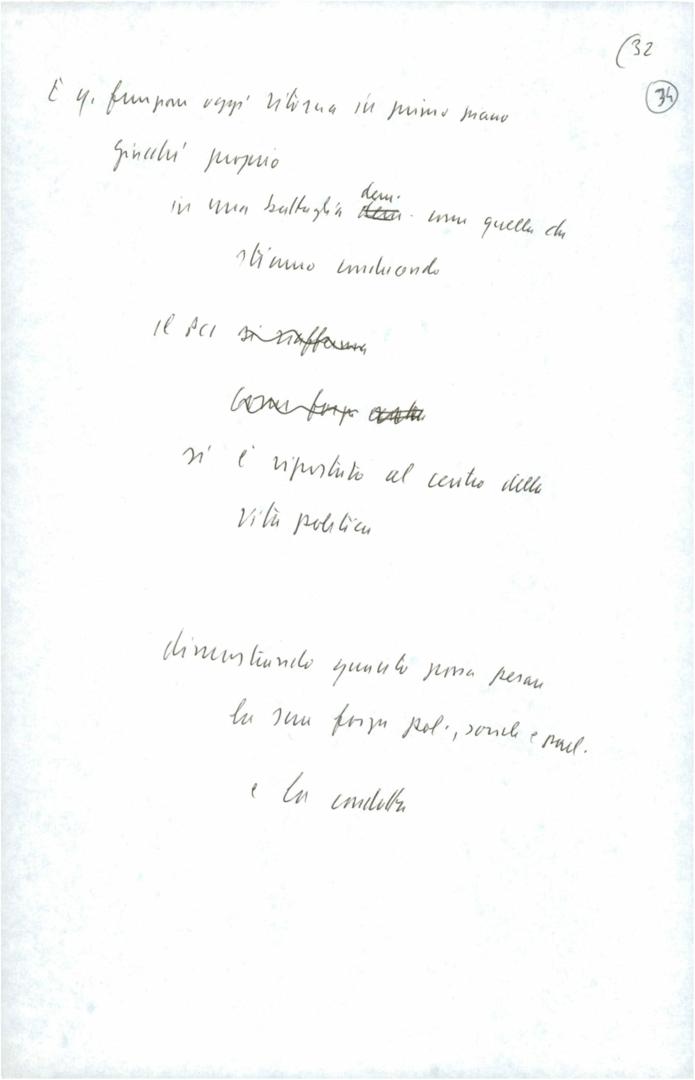 (32
34
E q. funzione oggi ritorna in primo piano
giacché proprio
in una battaglia dem. dem. come quella che
stiamo conducendo
il PCI si riafferma
come forza
si è rispostato al centro della
vita politica
dimostrando quanto possa pesare
la sua forza pol., sociale e parl.
e la condotta